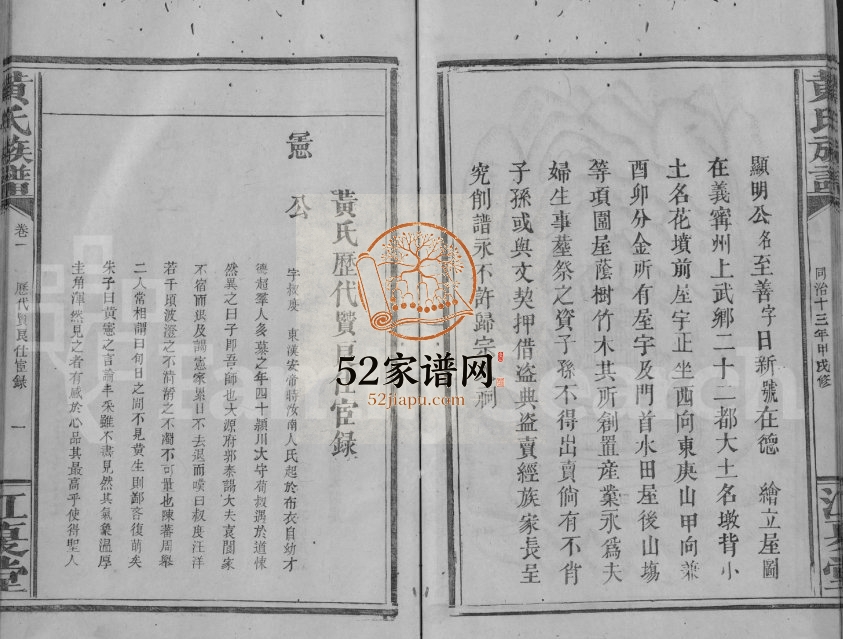 黃氏族譜
同治十三年甲戌修
江夏堂
顯明公名至善字日新號在德 繪立屋圖
在義寧州上武鄉二十二都大土名墩背小
土名花墳前屋宇正坐酉向東庚山甲向兼
酉卯分金所有屋宇及門首水田屋後山塲
等項圖屋蔭樹竹木其所創置產業永爲夫
婦生事塟祭之資子孫不得出賣倘有不肖
子孫或與文契押借盜典盜賣經族家長呈
究削譜永不許歸宗 祠
黃氏歷代賢良仕宦錄
憲公
字叔度 東漢安帝時汝南人氏起於布衣自幼才
德超羣人多慕之年四十潁川大守荀淑遇於道悚
然異之曰子即吾師也太源府郭泰謁大夫袁閬家
不宿而退及謁憲家累日不去退而嘆曰叔度汪洋
若千頃波澄之不淸淆之不濁不可量也陳蕃周舉
二人常相謂曰旬日之間不見黃生則鄙吝復萌矣
朱子曰黃憲之言論丰采雖不盡見然其氣象溫厚
圭角渾然見之者有感於心品其最高乎使得聖人
黃氏族譜
卷一
歷代賢良仕宦錄
一
江夏堂
52家谱网
52jiapu.com